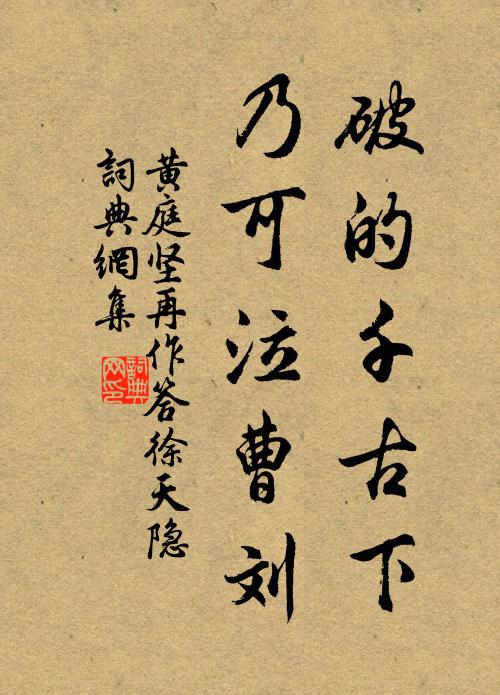 破的千古下
乃可泣曹刘
黄庭坚再作答徐天隐
詞典網集
詞典网印